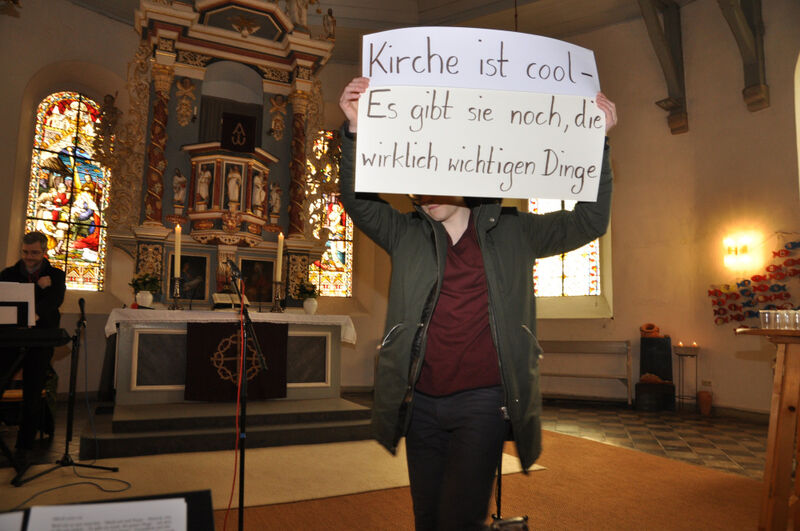 Kirche ist cool-
Es gibt sie noch, die
wirklich wichtigen Dinge